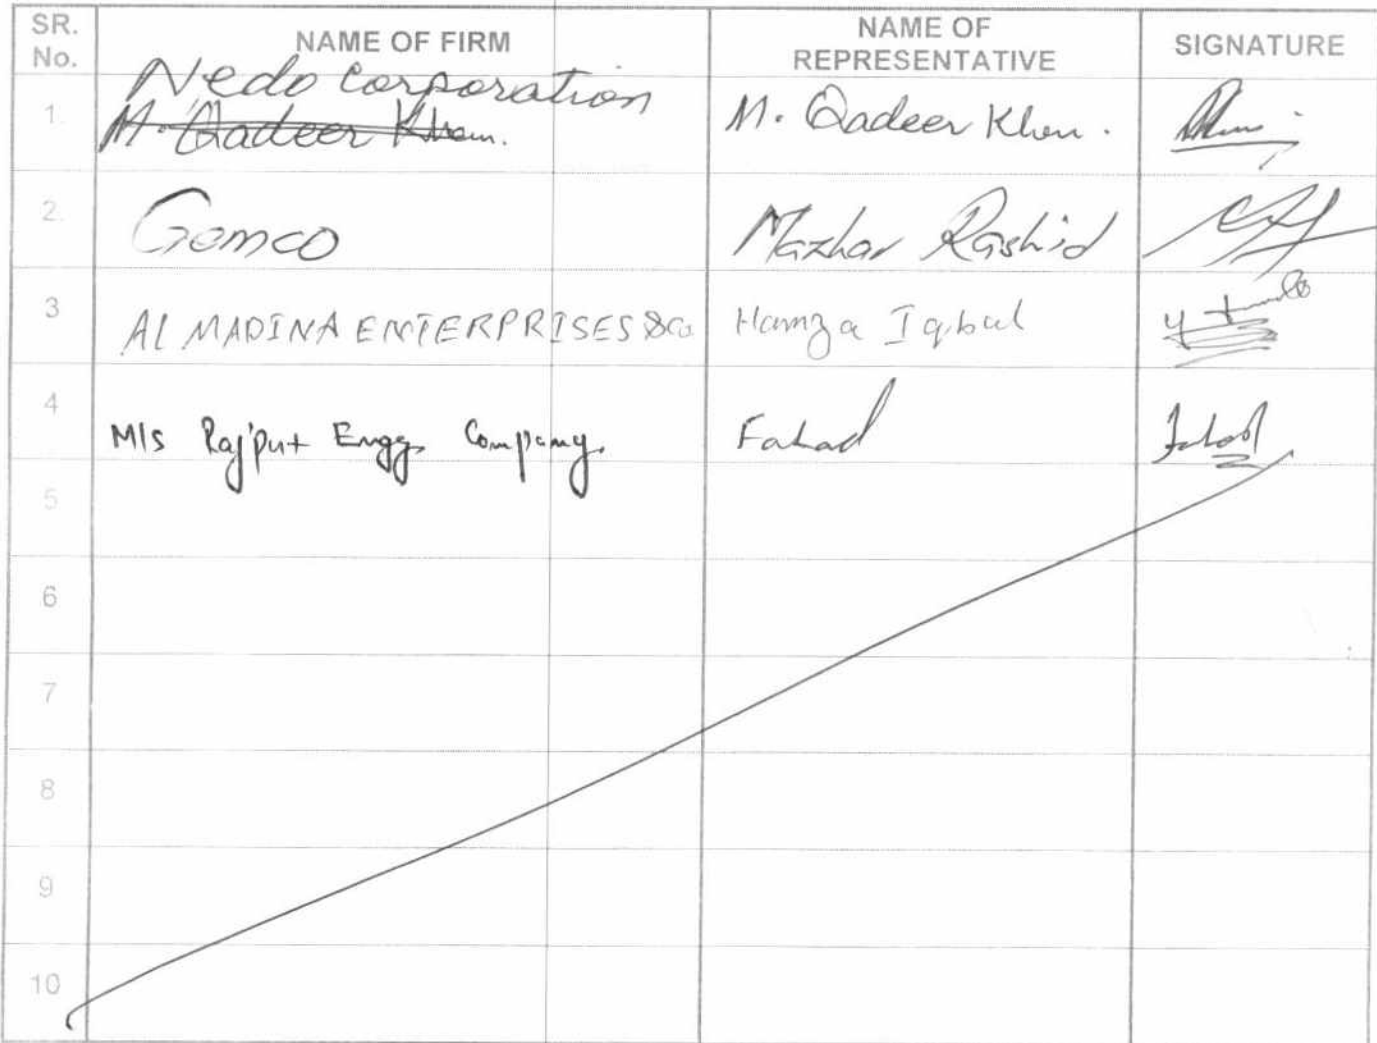 SR. No. NAME OF FIRM NAME OF REPRESENTATIVE SIGNATURE
Nedo Corporation
1. M. Qadeer Khan. M. Qadeer Khan.
2. Gemco Mazhar Rashid
3 AL MADINA ENTERPRISES & Co Hamza Iqbal
4 M/s Rajput Engg. Company. Fahad Fahad
5
6
7
8
9
10